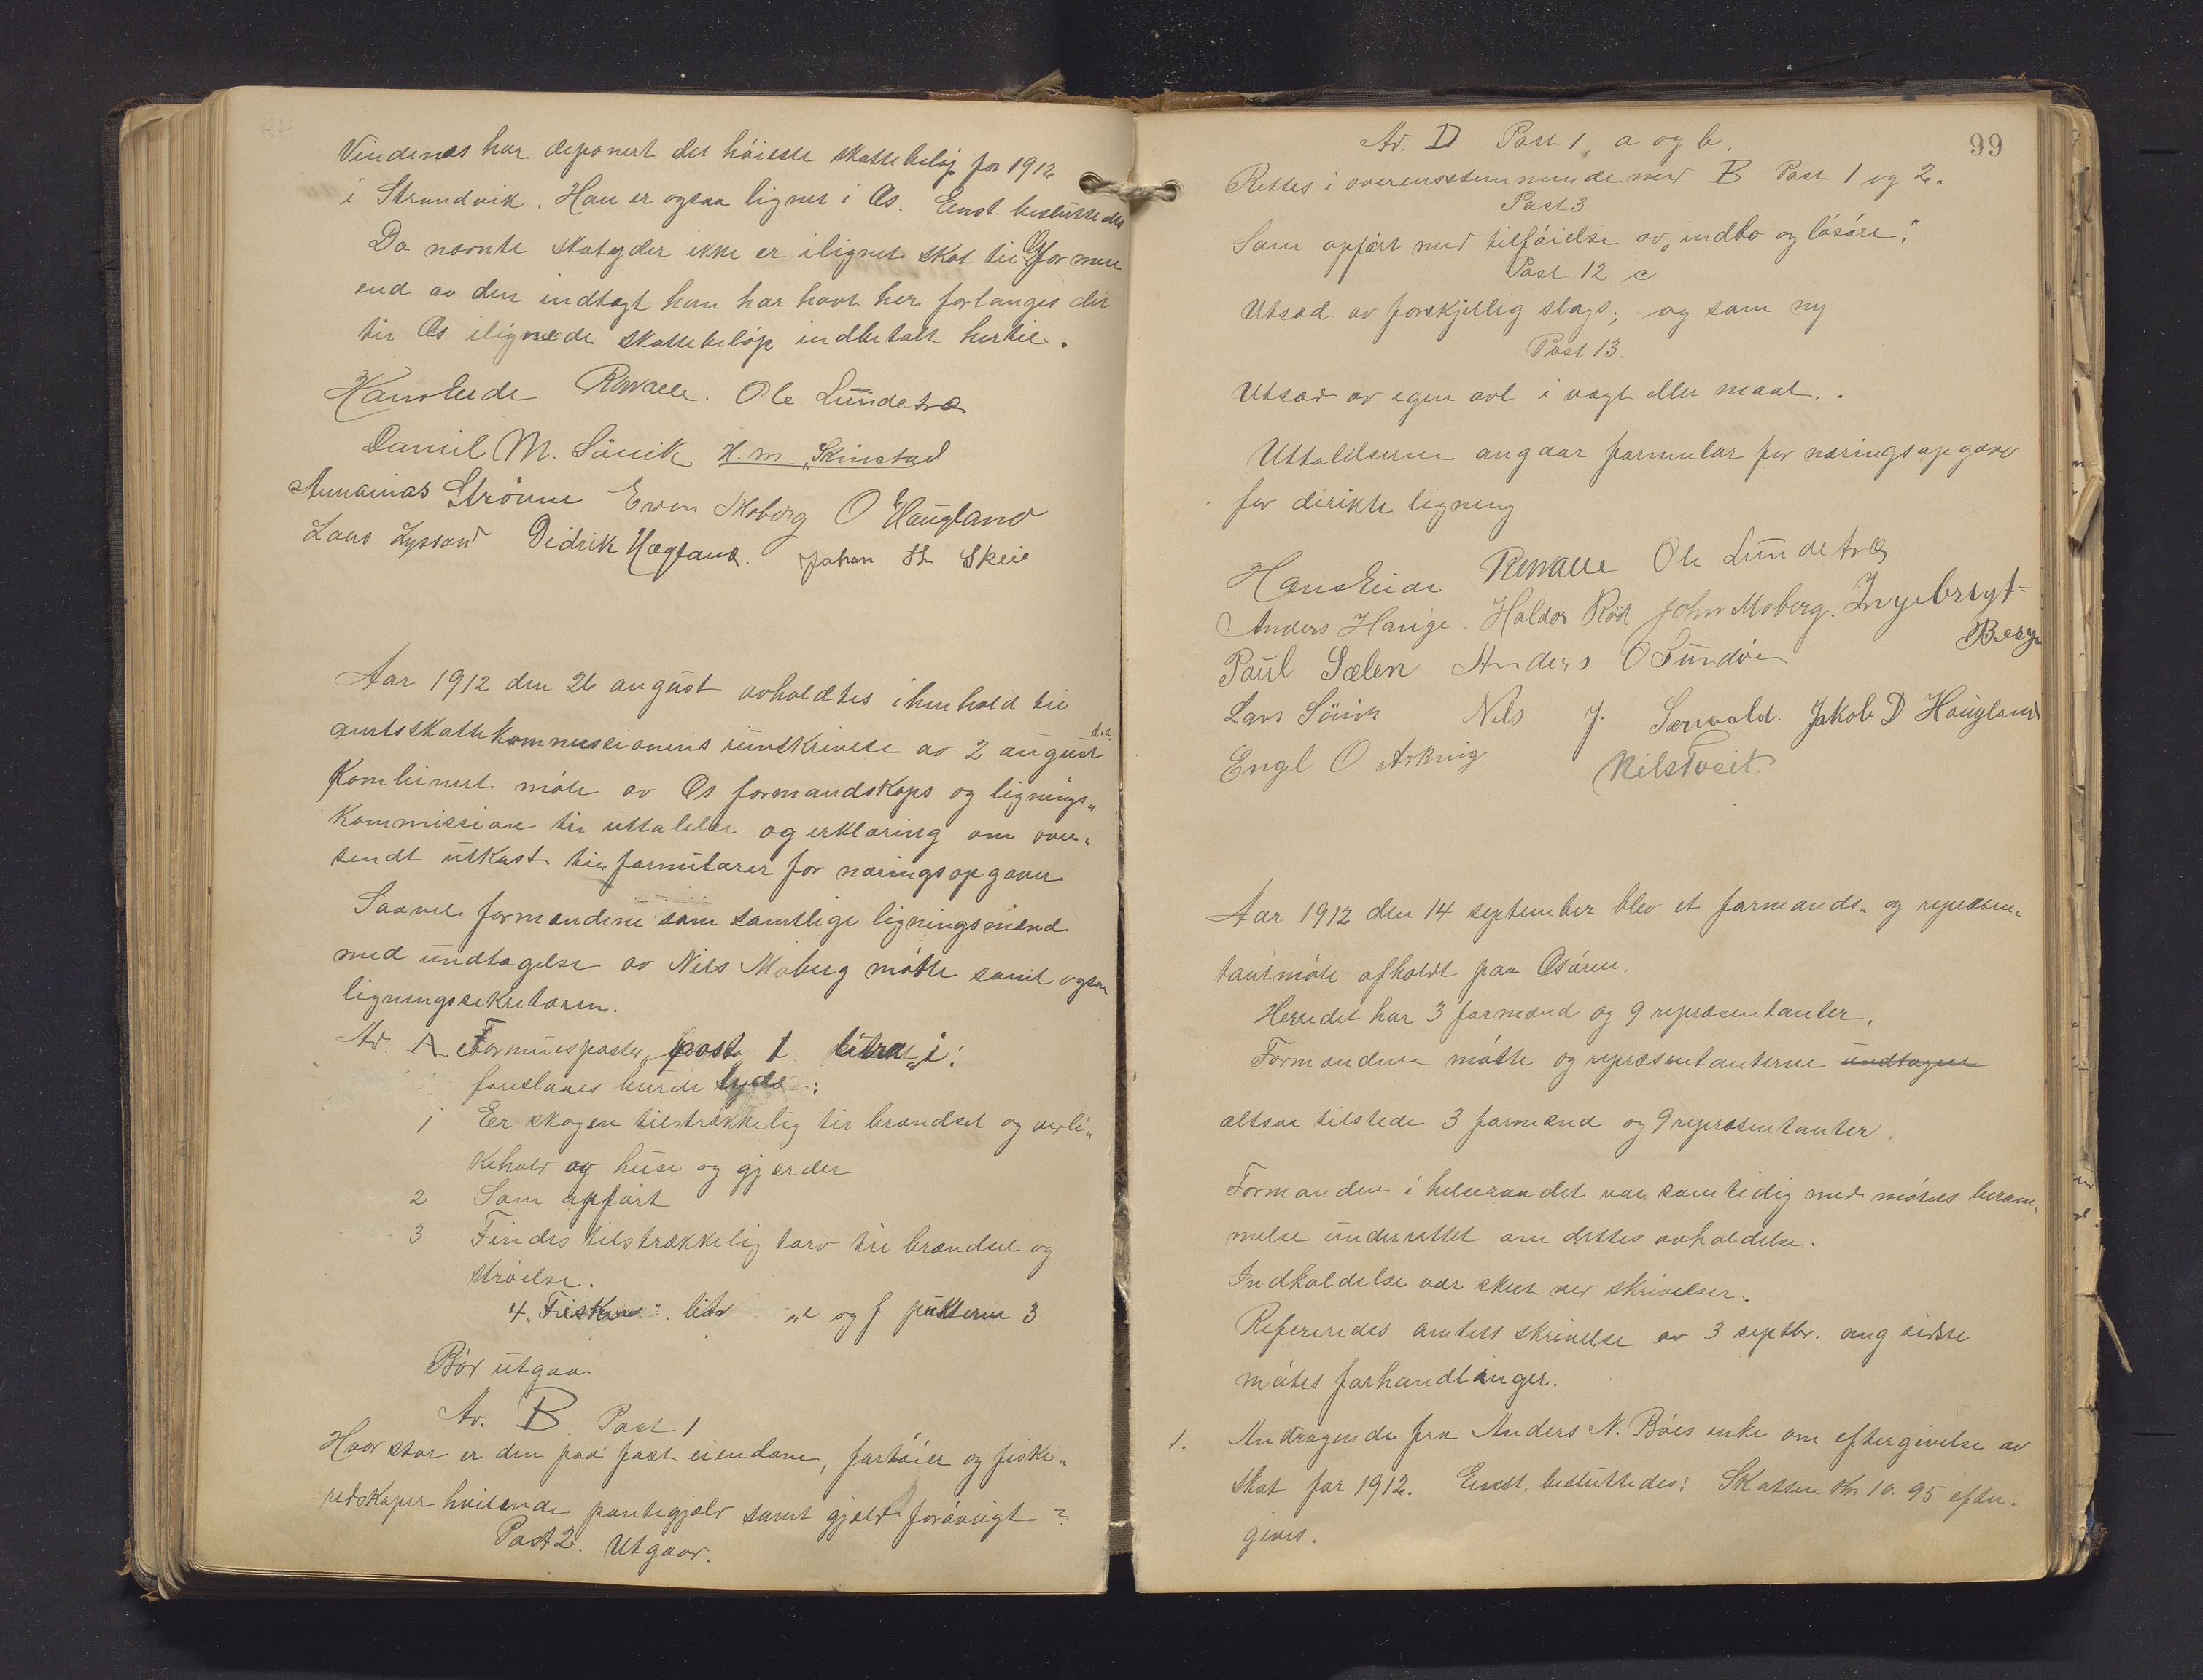 Vindenes har deponert det høieste skattebeløp for 1912
i Strandvik. Han er ogsaa lignet i Os. Enst. besluttedes
Da nævnte skatyder ikke er ilignet skat til Os for mere
end av den indtægt han har havt her forlanges det
til Os ilignede skattebeløp indbetalt hertil.
Hans Eide Ole Lundetræ
Daniel M. Søvik H. M. Skinstad
Strønne Even Moberg O Haugland
Lars Lyssand Didrik Hegland. Johan Th Skeie
Aar 1912 den 26 august avholdtes i henhold til
amtsskattekommissionens rundskrivelse av 2 august d.a.
kombinert møte av Os formandskaps og lignings„
kommission til uttalelse og erklæring om over„
sendt utkast til formularer for næringsopgaver
Saavel formændene som samtlige ligningsmænd
med undtagelse av Nils Moberg møtte samt ogsaa
ligningssekretæren.
Ad. A Formuesposter, post 1 litra i:
foreslaaes burde lyde:
1 Er skogen tilstrækkelig til brændsel og vedli„
kehold av huse og gjærder
2 Som opført
3 Findes tilstrækkelig torv til brændsel og
strøelse.
4. Fiskere". litr e og f pukterne 3
Bør utgaa
Ad. B. Post 1
Hvor stor er den paa fast eiendom, fartøier og fiske„
redskaper hvilende pantegjæld samt gjæld forøvrigt?
Post 2. Utgaar.
99
Ad. D Post 1, a og b.
Rettes i overensstemmende med B Post 1 og 2.
Post 3
Som opført med tilføielse av „indbo og løsøre."
Post 12 c
Utsæd av forskjellig slags; og som ny
Post 13.
Utsæd av egen avl i vægt eller maal.
Uttalelserne angaar formular for næringsopgave
for direkte ligning
Hans Eide Ole Lundetræ
Anders Hauge. Haldor Rød John Moberg. Ingebrigt
Berge
Paul Sælen Anders O Sundøen
Lars Søvik Nils J. Sørvold. Jakob D Haugland
Engel O Nils Tveit.
Aar 1912 den 14 september blev et formands„ og repræsen„
tantmøte afholdt paa Osøren.
Herredet har 3 formænd og 9 repræsentanter.
Formændene møtte og repræsentanterne undtagen
altsaa tilstede 3 formænd og 9 repræsentanter.
Formanden i helseraadet var samtidig med møtets beram„
melse underrettet om dettes avholdelse.
Indkaldelse var skeet ved skrivelser.
Refereredes amtets skrivelse av 3 septbr. ang sidste
møtes forhandlinger.
1. Andragende fra Anders N. Bøes enke om eftergivelse av
skat for 1912. Enst. besluttedes: Skatten Kr. 10.95 efter„
gives.